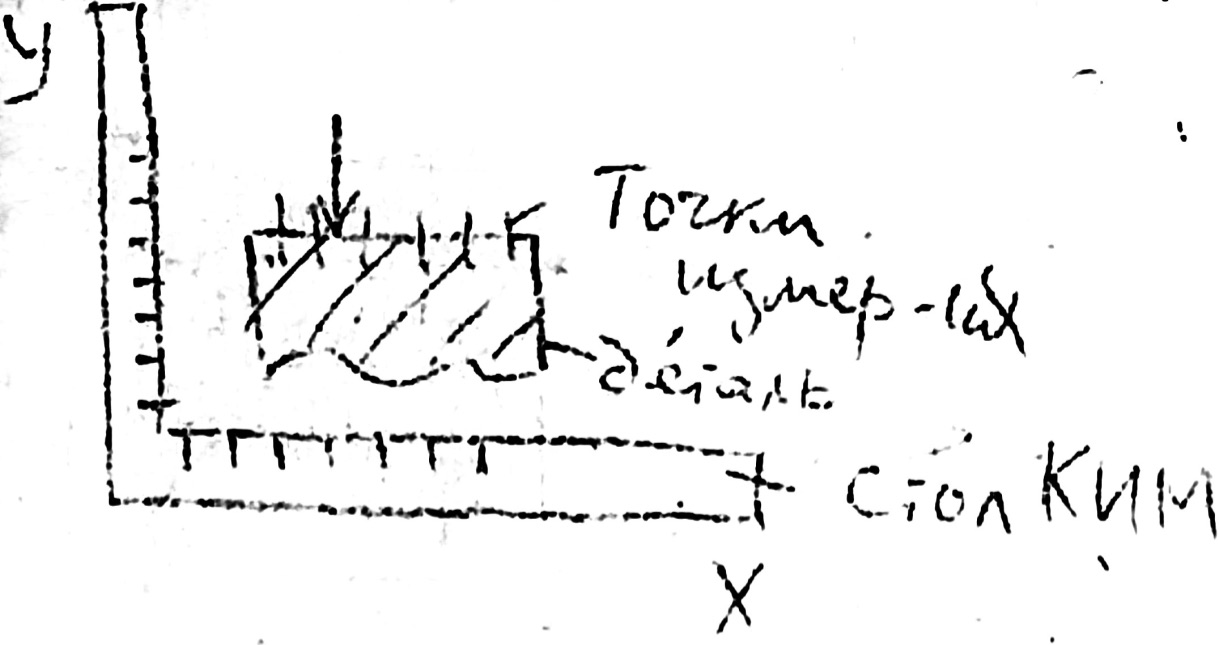 У
Точки
измер-
деталь
стол КИМ
X